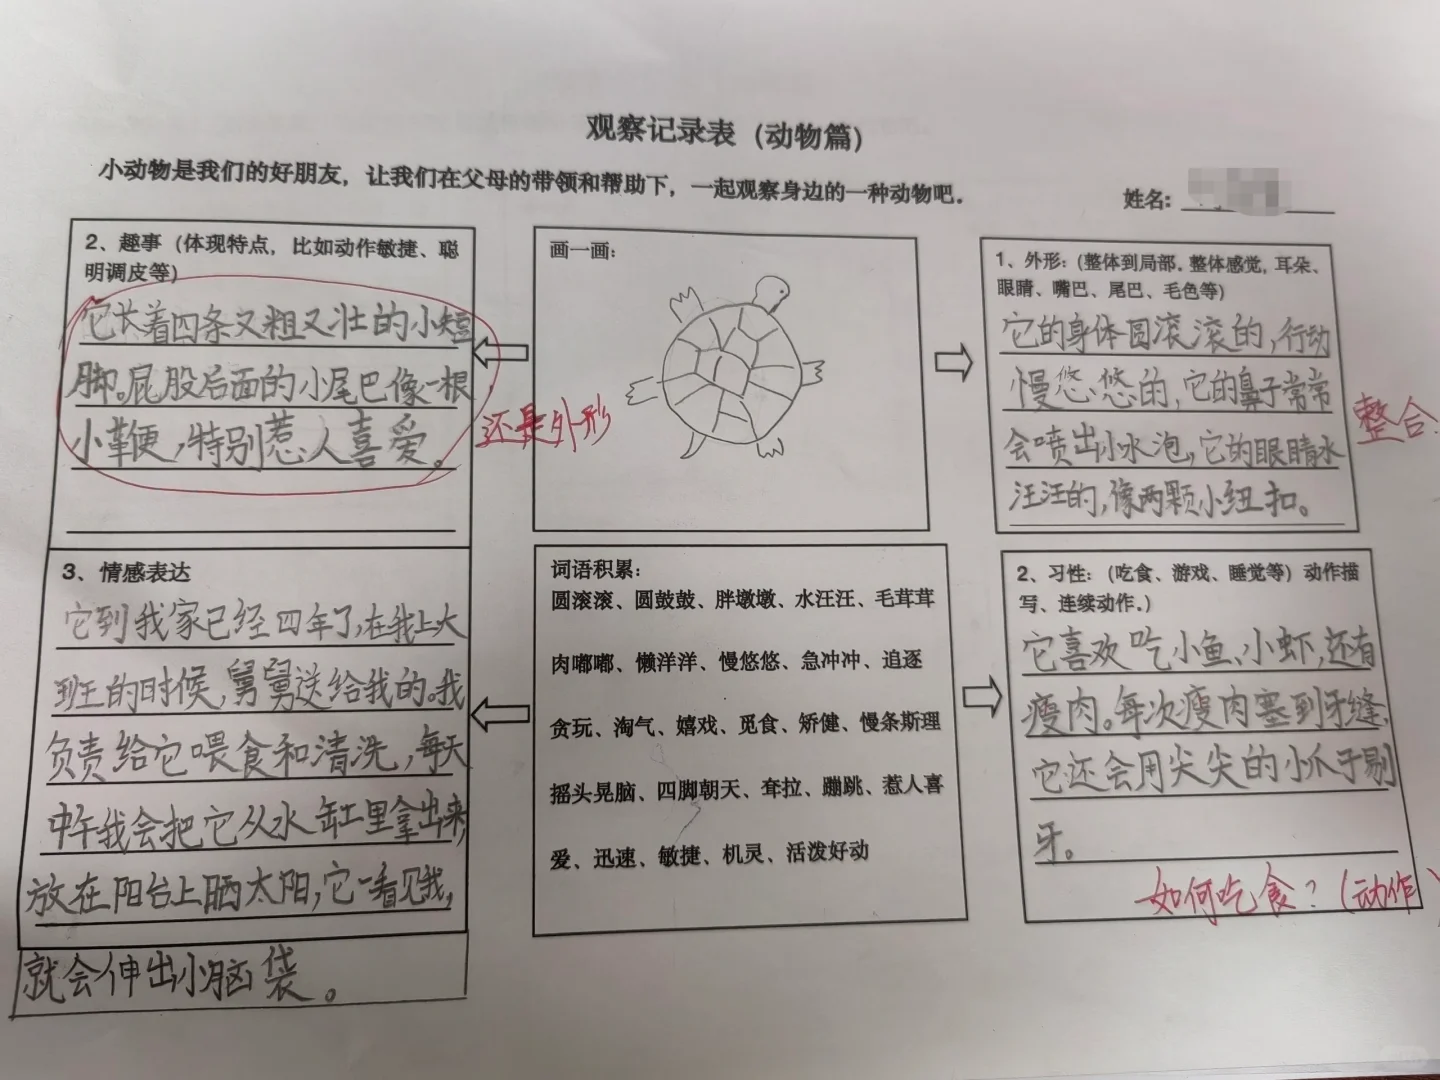 观察记录表（动物篇）
小动物是我们的好朋友，让我们在父母的带领和帮助下，一起观察身边的一种动物吧。
姓名：
2、趣事（体现特点，比如动作敏捷、聪
明调皮等）
它长着四条又粗又壮的小短
脚。屁股后面的小尾巴像一根
小鞭，特别惹人喜爱。
还是外形
画一画：
1、外形：（整体到局部．整体感觉，耳朵、
眼睛、嘴巴、尾巴、毛色等）
它的身体圆滚滚的，行动
慢悠悠的，它的鼻子常常
会喷出小水泡，它的眼睛水
汪汪的，像两颗小纽扣。
整合.
3、情感表达
它到我家已经四年了，在我上大
班的时候，舅舅送给我的。我
负责给它喂食和清洗，每天
中午我会把它从水缸里拿出来，
放在阳台上晒太阳，它一看见我，
就会伸出小脑袋。
词语积累：
圆滚滚、圆鼓鼓、胖墩墩、水汪汪、毛茸茸
肉嘟嘟、懒洋洋、慢悠悠、急冲冲、追逐
贪玩、淘气、嬉戏、觅食、矫健、慢条斯理
摇头晃脑、四脚朝天、耷拉、蹦跳、惹人喜
爱、迅速、敏捷、机灵、活泼好动
2、习性：（吃食、游戏、睡觉等）动作描
写、连续动作．）
它喜欢吃小鱼、小虾，还有
瘦肉。每次瘦肉塞到牙缝，
它还会用尖尖的小爪子剔
牙。
如何吃食？（动作）